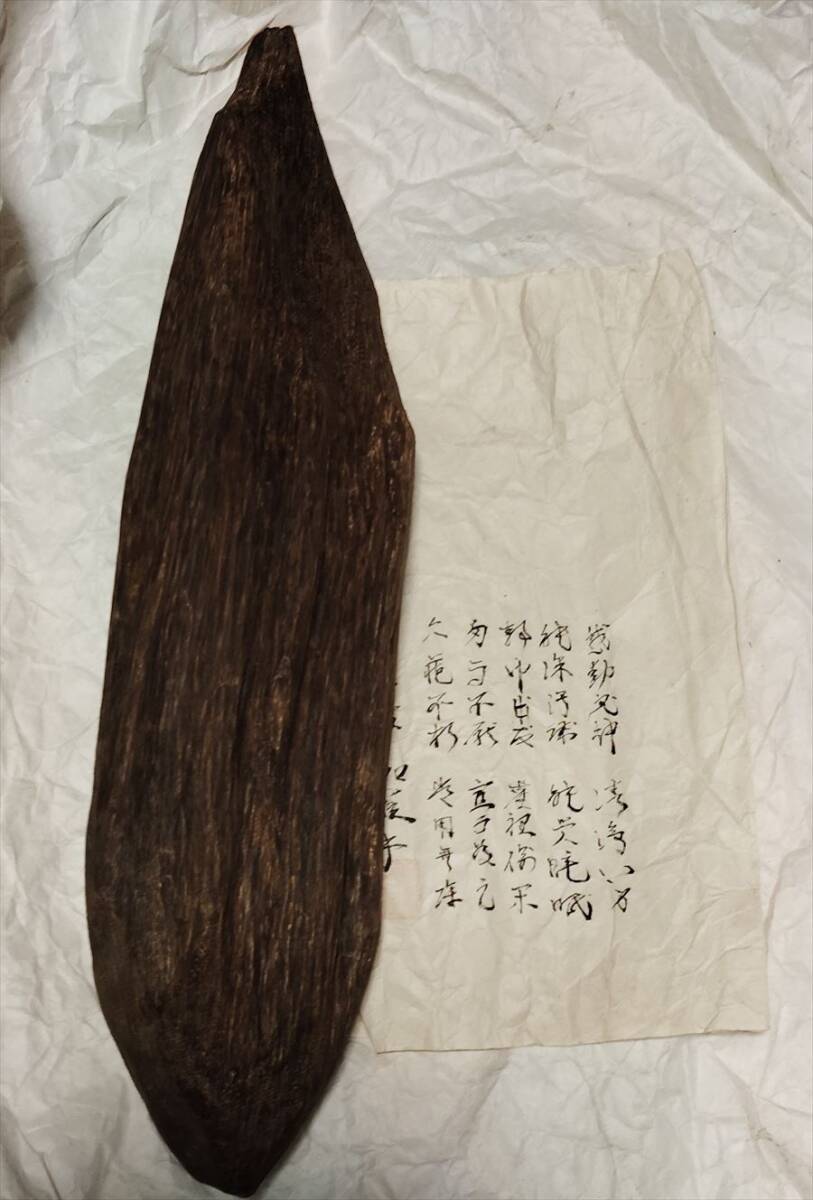 感動鬼神 清浄心身
能除汚穢 能覚睡眠
静中成友 塵裡偸閑
多而不厭 寡而為足
久蔵不朽 常用無障